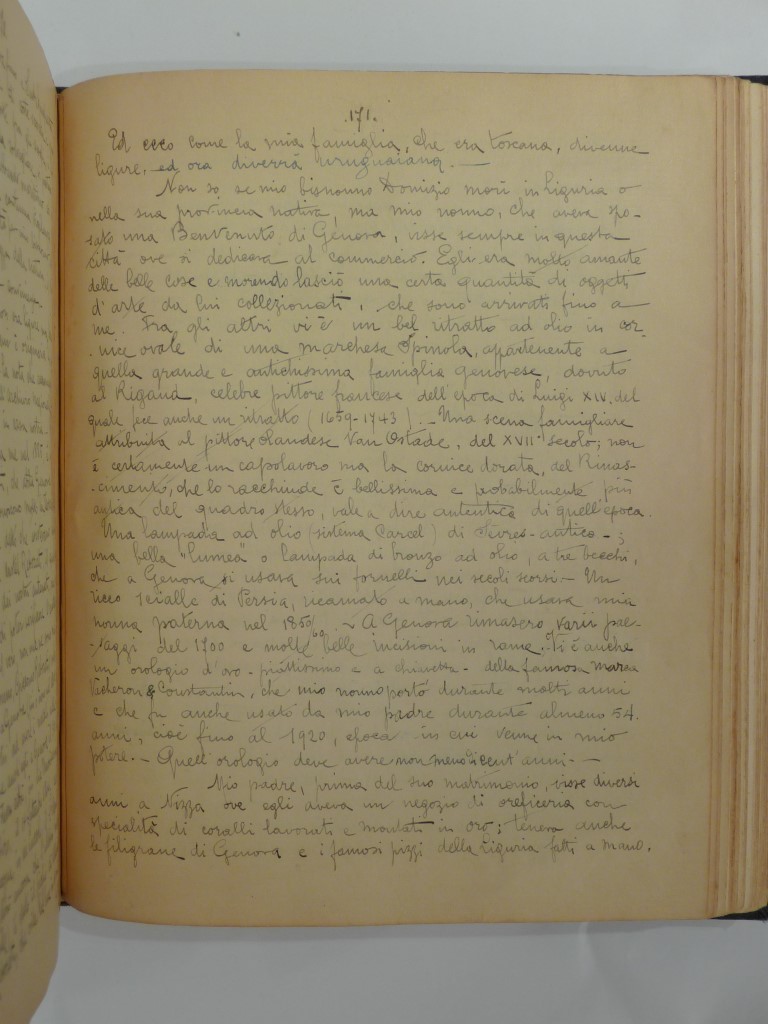 .171.
Ed ecco come la mia famiglia, che era toscana, divenne
ligure, ed ora diverrà uruguaiana. —
Non so, se mio bisnonno Domizio morì in Liguria o
nella sua provincia nativa, ma mio nonno, che aveva spo-
sato una Benvenuto di Genova, visse sempre in questa
città ove si dedicava al commercio. Egli era molto amante
delle belle cose e morendo lasciò una certa quantità di oggetti
d'arte da lui collezionati, che sono arrivati fino a
me. Fra gli altri vi è un bel ritratto ad olio in cor-
nice ovale di una marchesa Spinola, appartenente a
quella grande e antichissima famiglia genovese, dovuto
al Rigaud, celebre pittore francese dell'epoca di Luigi XIV. del
quale fece anche un ritratto (1659-1743). — Una scena famigliare
attribuita al pittore olandese Van Ostade, del XVII° secolo; non
è certamente un capolavoro ma la cornice dorata, del Rinas-
-cimento, che lo racchiude è bellissima e probabilmente più
antica del quadro stesso, vale a dire autentica di quell'epoca.
Una lampada ad olio (sistema Carcel) di Sèvres-antico-;
una bella "lumea" o lampada di bronzo ad olio, a tre becchi,
che a Genova si usava sui fornelli nei secoli scorsi — Un
ricco scialle di Persia, ricamato a mano, che usava mia
nonna paterna nel 1850/60. — A Genova rimasero varii pae-
-saggi del 1700 e molte belle incisioni in rame. Vi è anche
un orologio d'oro - piattissimo e a chiavetta - della famosa marca
Vacheron & Constantin, che mio nonno portò durante molti anni
e che fu anche usato da mio padre durante almeno 54.
anni, cioè fino al 1920, epoca in cui venne in mio
potere. — Quell'orologio deve avere non meno di cent'anni. —
Mio padre, prima del suo matrimonio, visse diversi
anni a Nizza ove egli aveva un negozio di oreficeria con
specialità di coralli lavorati e montati in oro; teneva anche
le filigrane di Genova e i famosi pizzi della Liguria fatti a mano.